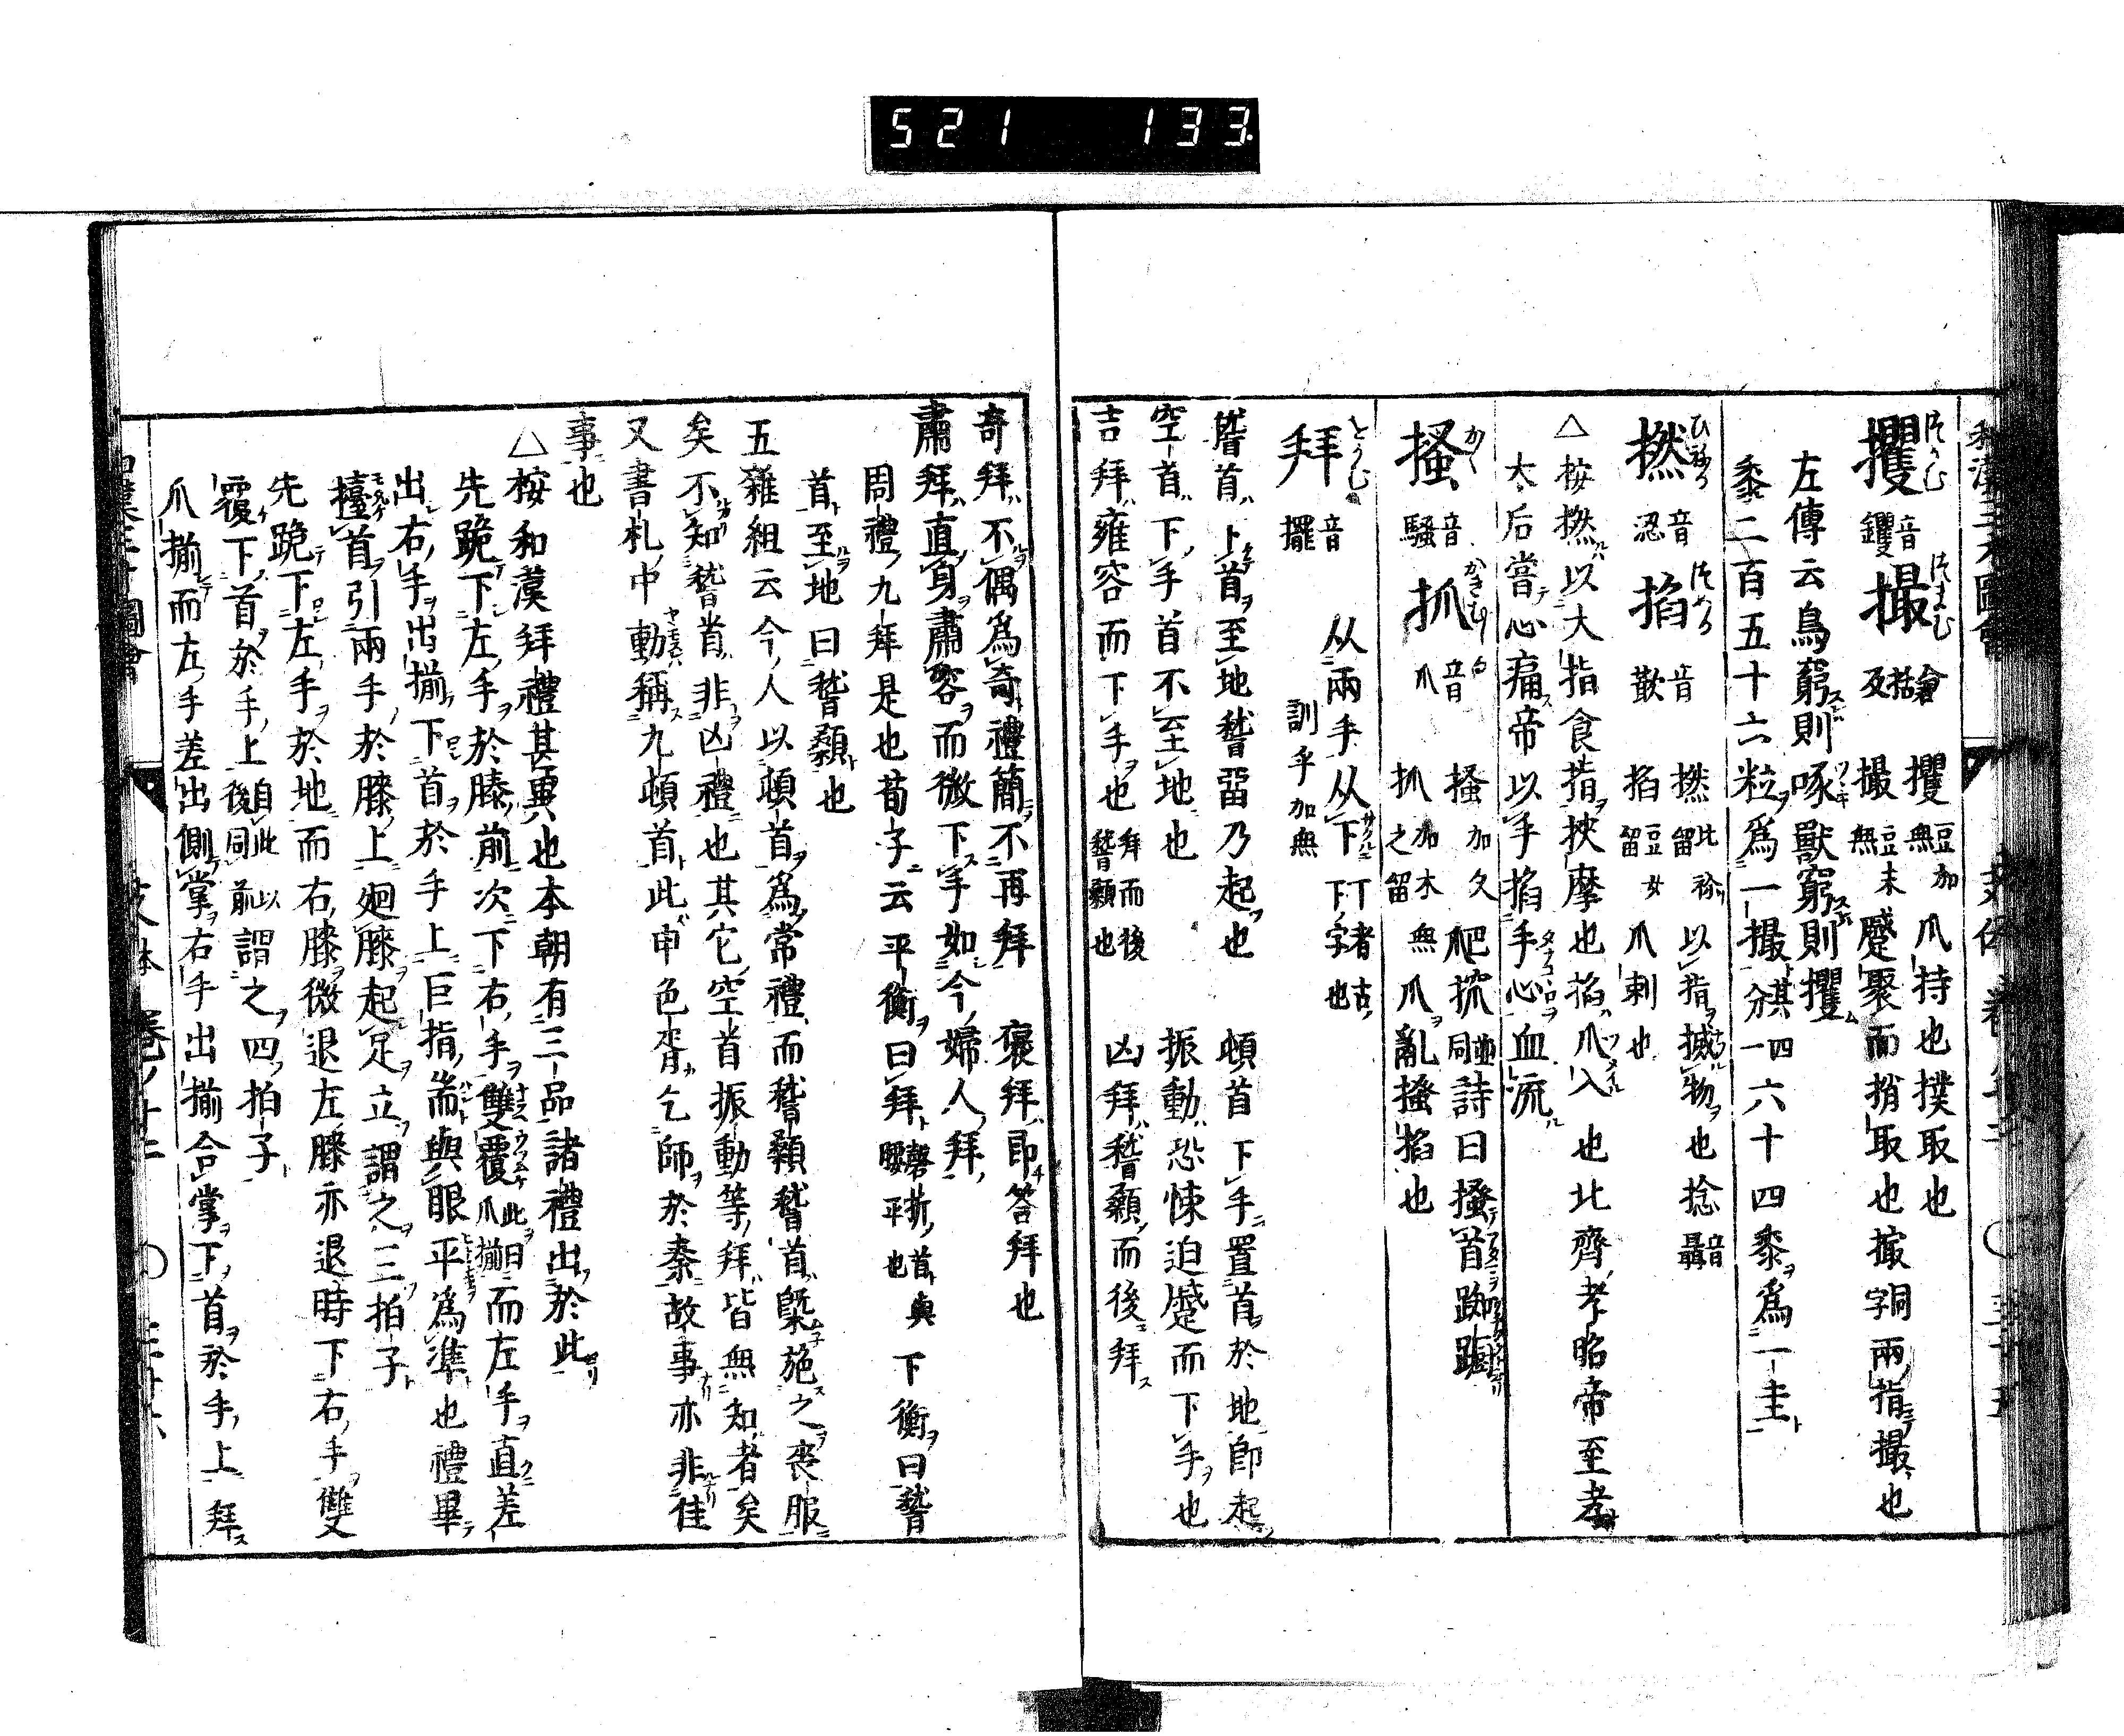 521 133
和漢三才圖會
攫 音钁 撮 攫 爪持也撲取也
撮 蹙聚而捎取也撮同字兩指撮也
左傳云鳥窮則啄獸窮則攫
黍二百五十六粒爲一撮其四分一六十四黍爲一圭
撚 音忍 掐 音歉 撚 比祢留 以指搣物也捻音聶
掐 豆女留 爪刺也
△按撚以大指食指挾摩也掐爪入也北齊孝昭帝至孝
太后嘗心痛帝以手掐手心血流
搔 音騷 抓 音爪 搔 加久 爬 同 詩曰搔首踟蹰
抓 加木無之留 爪亂搔掐也
拜 音擺 从兩手从下 丁者古下字也
訓乎加無
稽首下首至地稽留乃起也 頓首下手置首於地即起
空首下手首不至地也 振動恐悚迫蹙而下手也
吉拜雍容而下手也 拜而後稽顙也 凶拜稽顙而後拜
奇拜不偶爲奇禮簡不再拜 褒拜即荅拜也
肅拜直身肅容而微下手如今婦人拜
周禮九拜是也荀子云平衡曰拜 磬折首與腰平也 下衡曰稽
首至地曰稽顙也
五雜組云今人以頓首爲常禮而稽顙稽首槩施之喪服
矣不知稽首非凶禮也其它空首振動等拜皆無知者矣
又書札中動稱九頓首此申包胥乞師於秦故事亦非佳
事也
△按和漢拜禮甚異也本朝有三品諸禮出於此
先跪下左手於膝前次下右手雙覆 此曰爪揃 而左手直差
出右手出揃下首於手上巨指耑與眼平爲準也禮畢
擡首引兩手於膝上廻膝起足立謂之三拍子
先跪下左手於地而右膝微退左膝亦退時下右手雙
覆下首於手上 自此以後同前 謂之四拍子
爪揃而左手差出側掌右手出揃合掌下首於手上拜